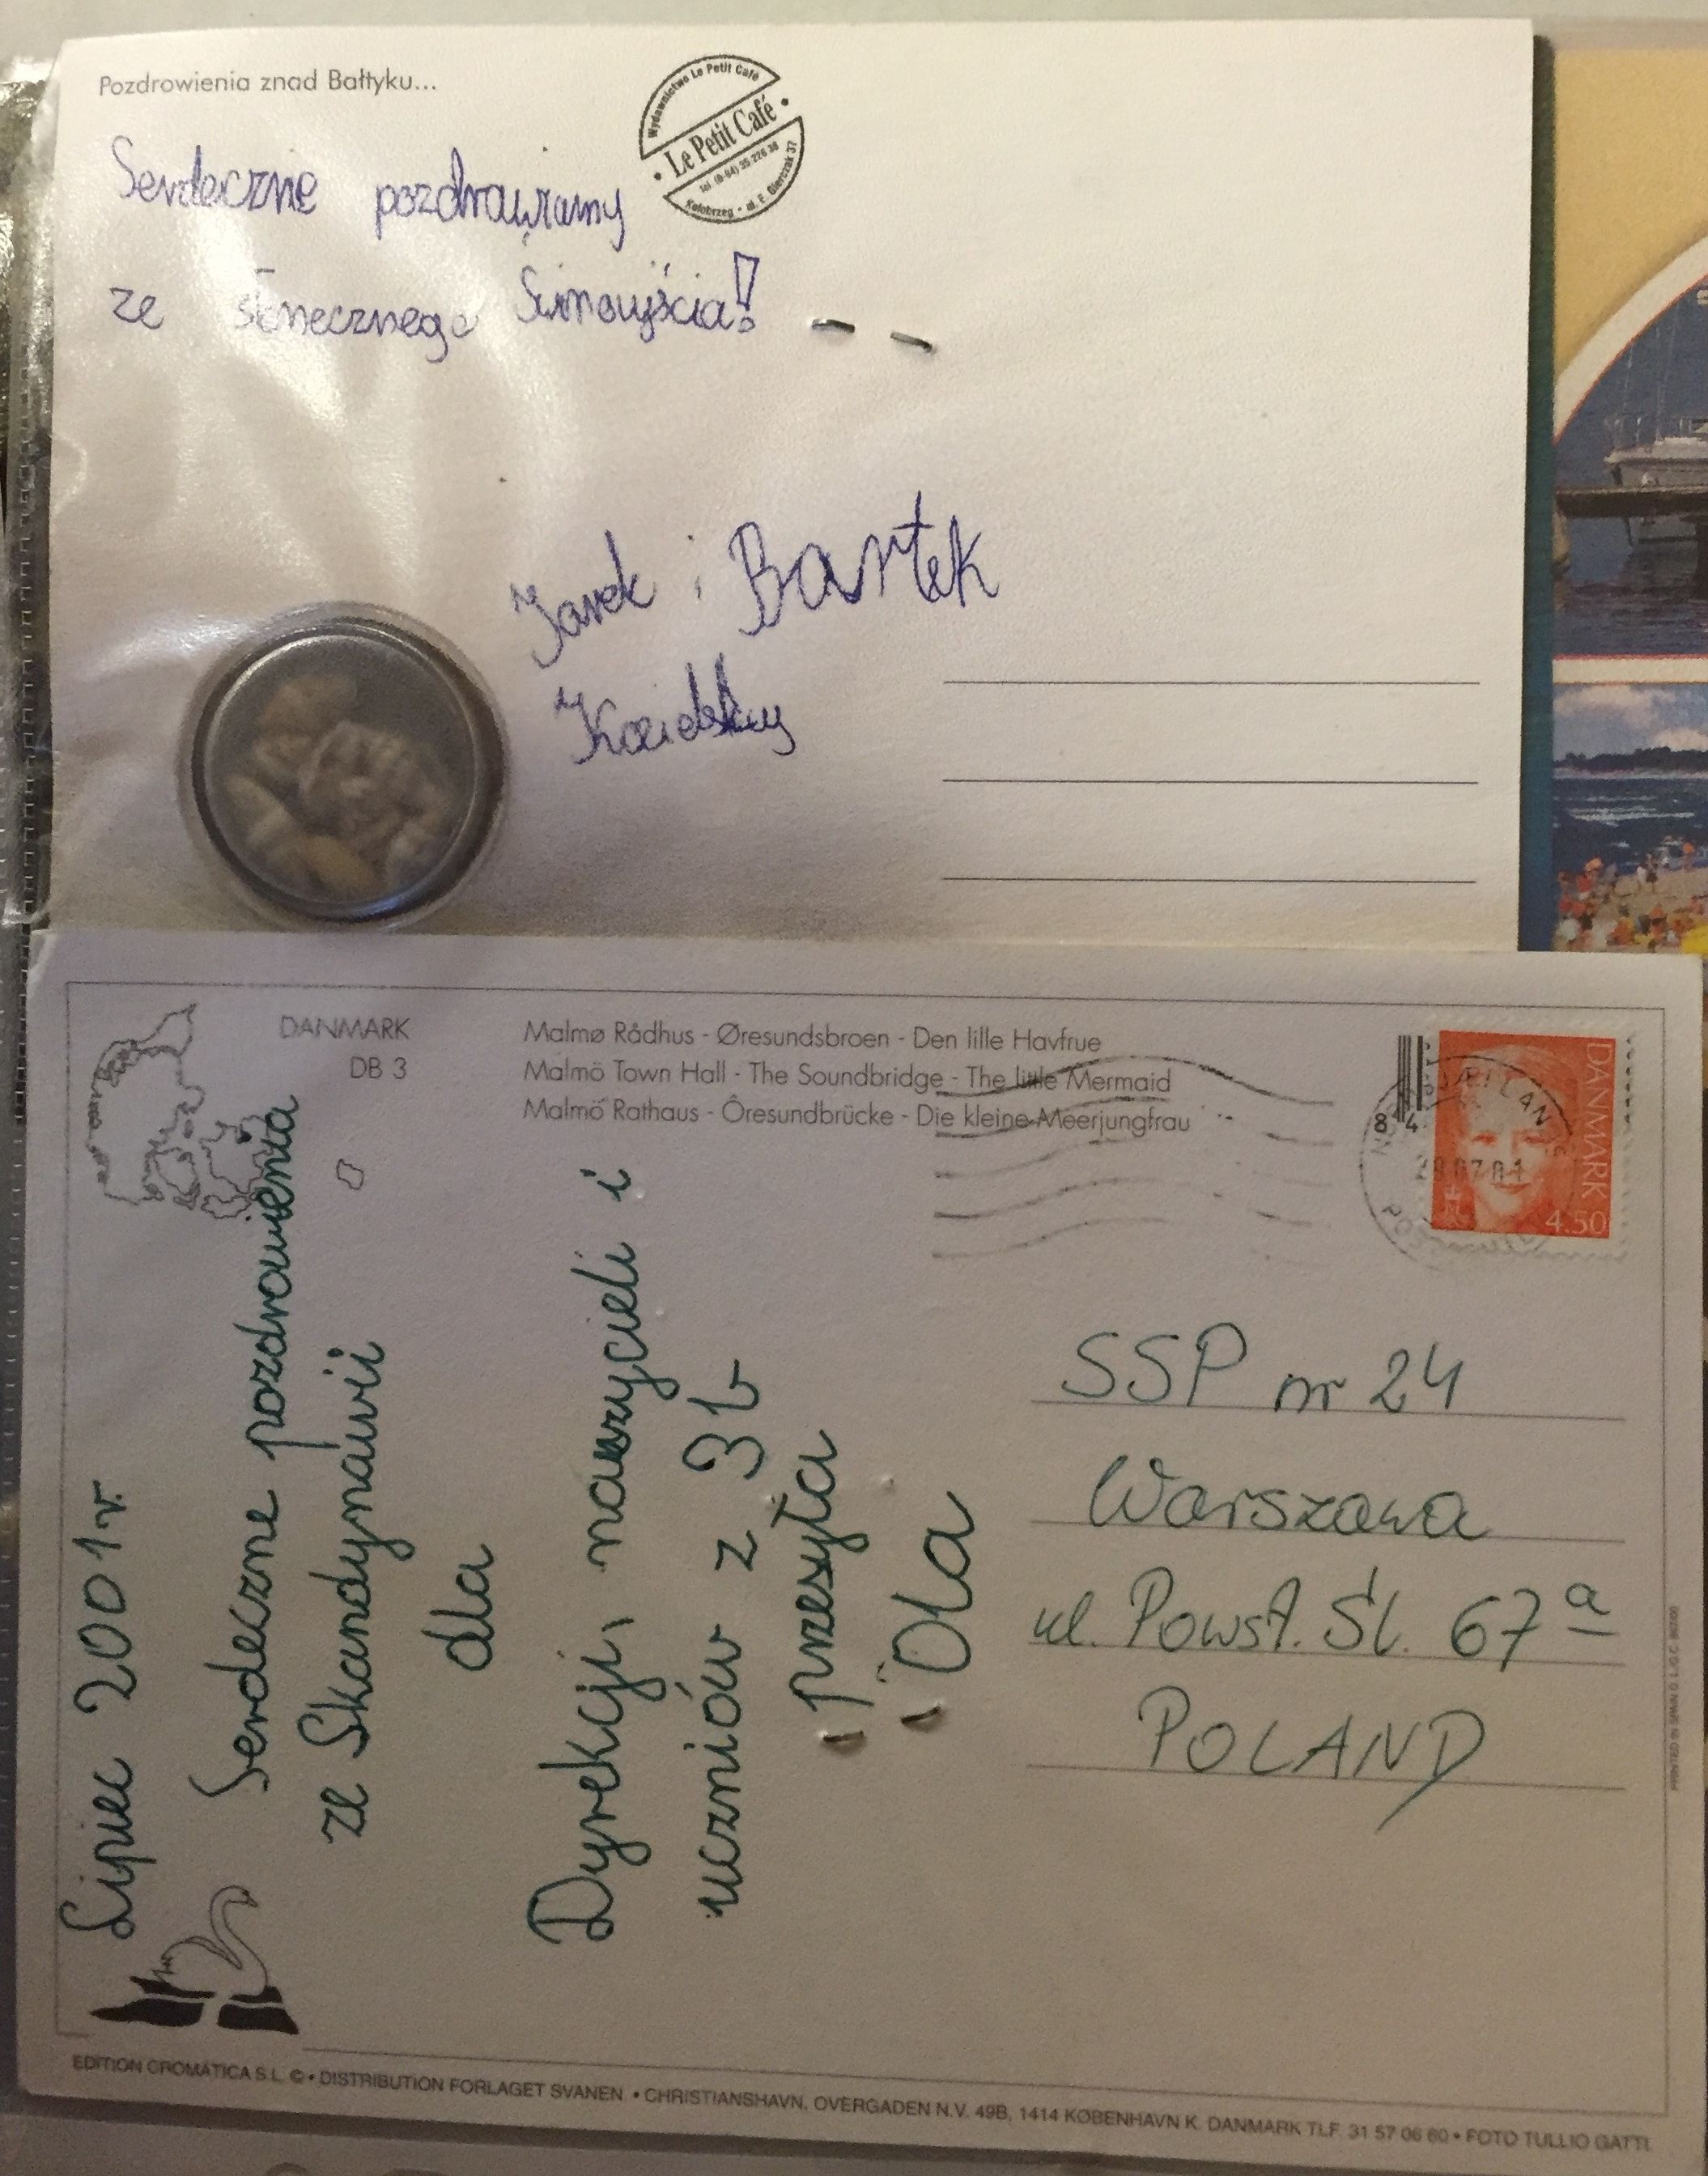 Pozdrowienia znad Bałtyku...
Wydawnictwo Le Petit Café
Le Petit Café
tel. (0-94) 35 226 38
Kołobrzeg - ul. E. Gierczak 37
Serdecznie pozdrawiamy
ze słonecznego Świnoujścia!
Jarek i Bartek
DANMARK
DB 3
Malmø Rådhus - Øresundsbroen - Den lille Havfrue
Malmö Town Hall - The Soundbridge - The little Mermaid
Malmö Rathaus - Öresundbrücke - Die kleine Meerjungfrau
DANMARK
4.50
84
Lipiec 2001 r.
Serdeczne pozdrowienia
ze Skandynawii
dla
Dyrekcji, nauczycieli i
uczniów z 3b
przesyła
Ola
SSP nr 24
Warszawa
ul. Powst. Śl. 67 a
POLAND
EDITION CROMATICA S.L. © • DISTRIBUTION FORLAGET SVANEN • CHRISTIANSHAVN, OVERGADEN N.V. 49B, 1414 KØBENHAVN K. DANMARK TLF. 31 57 06 60 • FOTO TULLIO GATTI